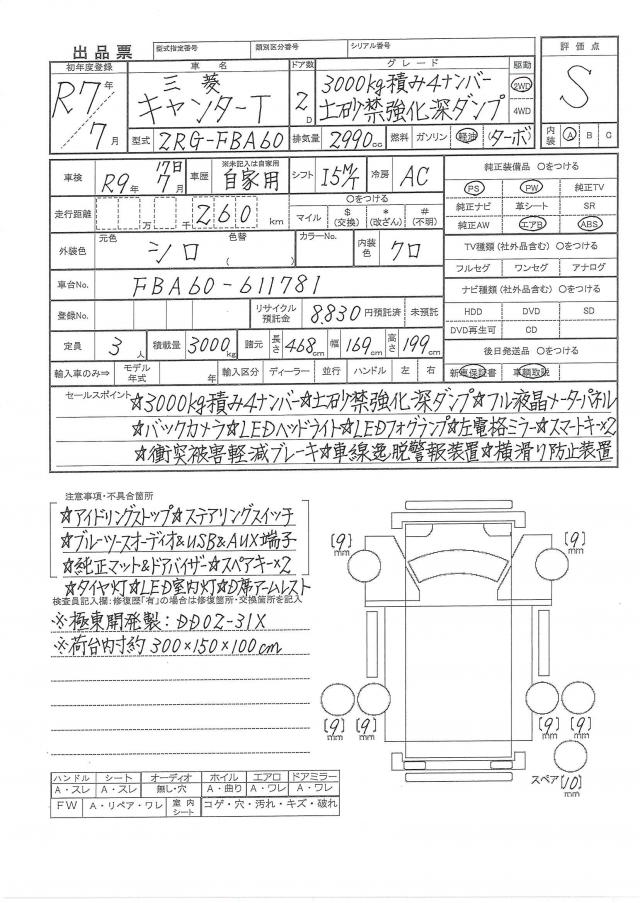 出品票 型式指定番号 類別区分番号 シリアル番号
初年度登録 車名 ドア数 グレード 駆動 評価点
R7年 三菱 キャンターT 2D 3000kg積み4ナンバー 2WD S
7月 土砂禁強化深ダンプ 4WD
型式 2RG-FBA60 排気量 2990cc 燃料 ガソリン 軽油 (ターボ) 内装 A B C
車検 R9年 7月 17日 車歴 ※未記入は自家用 自家用 シフト I5M/T 冷房 AC 純正装備品 〇をつける
PS PW 純正TV
走行距離 万 千 260 km 〇をつける マイル $(交換) *(改ざん) #(不明) 純正ナビ 革シート SR
純正AW エアB ABS
外装色 元色 シロ 色替 ( ) カラーNo. 内装色 クロ TV種類(社外品含む)〇をつける
フルセグ ワンセグ アナログ
車台No. FBA60-611781 ナビ種類(社外品含む)〇をつける
登録No. リサイクル預託金 8.830 円預託済 未預託 HDD DVD SD
DVD再生可 CD
定員 3人 積載量 3000kg 諸元 長さ 468cm 幅 169cm 高さ 199cm 後日発送品 〇をつける
輸入車のみ⇒ モデル年式 年 輸入区分 ディーラー 並行 ハンドル 左 右 新車保証書 車輌取説
セールスポイント ☆3000kg積み4ナンバー☆土砂禁強化深ダンプ☆フル液晶メーターパネル
☆バックカメラ☆LEDヘッドライト☆LEDフォグランプ☆左電格ミラー☆スマートキー×2
☆衝突被害軽減ブレーキ☆車線逸脱警報装置☆横滑り防止装置
注意事項・不具合箇所
☆アイドリングストップ☆ステアリングスイッチ
☆ブルーツースオーディオ&USB&AUX端子
☆純正マット&ドアバイザー☆スペアキー×2
☆タイヤ灯☆LED室内灯☆D席アームレスト
検査員記入欄:修復歴「有」の場合は修復箇所・交換箇所を記入
※極東開発製:DD02-31X
※荷台内寸約300×150×100cm
[9]mm [9]mm
[9]mm [9]mm [9]mm [9]mm
スペア[10]mm
ハンドル シート オーディオ ホイル エアロ ドアミラー
A・スレ A・スレ 無し・穴 A・曲り A・ワレ A・ワレ
FW A・リペア・ワレ 室内シート コゲ・穴・汚れ・キズ・破れ